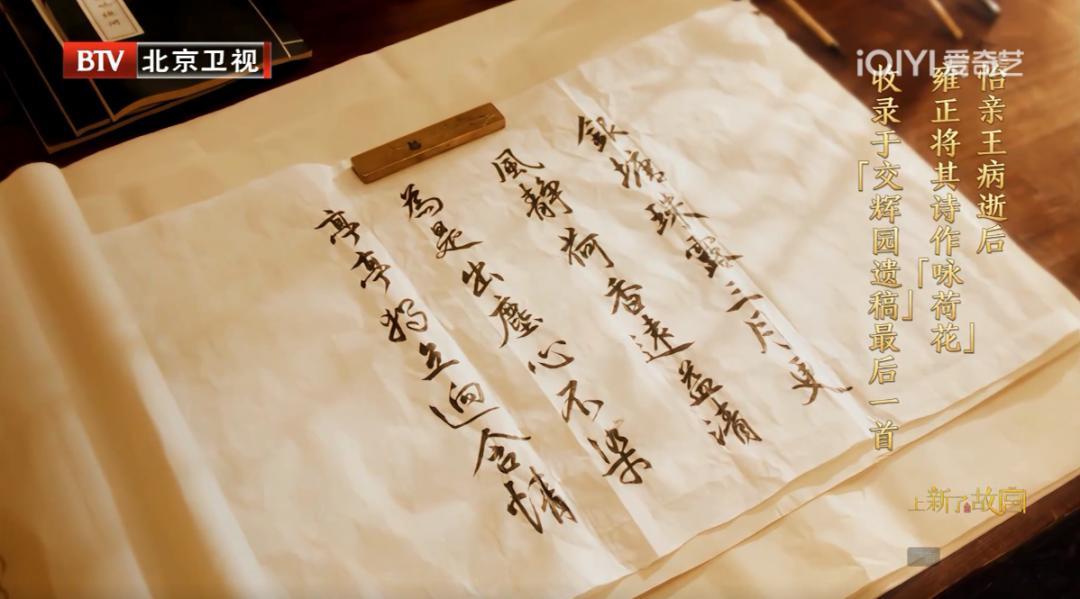 BTV 北京卫视
iQIYI 爱奇艺
怡亲王病逝后
雍正将其诗作「咏荷花」
收录于「交辉园遗稿」最后一首
銀塘珠露三月更
風靜荷香遠益清
為是出塵心不染
亭亭獨立逈含情
上新了故宫